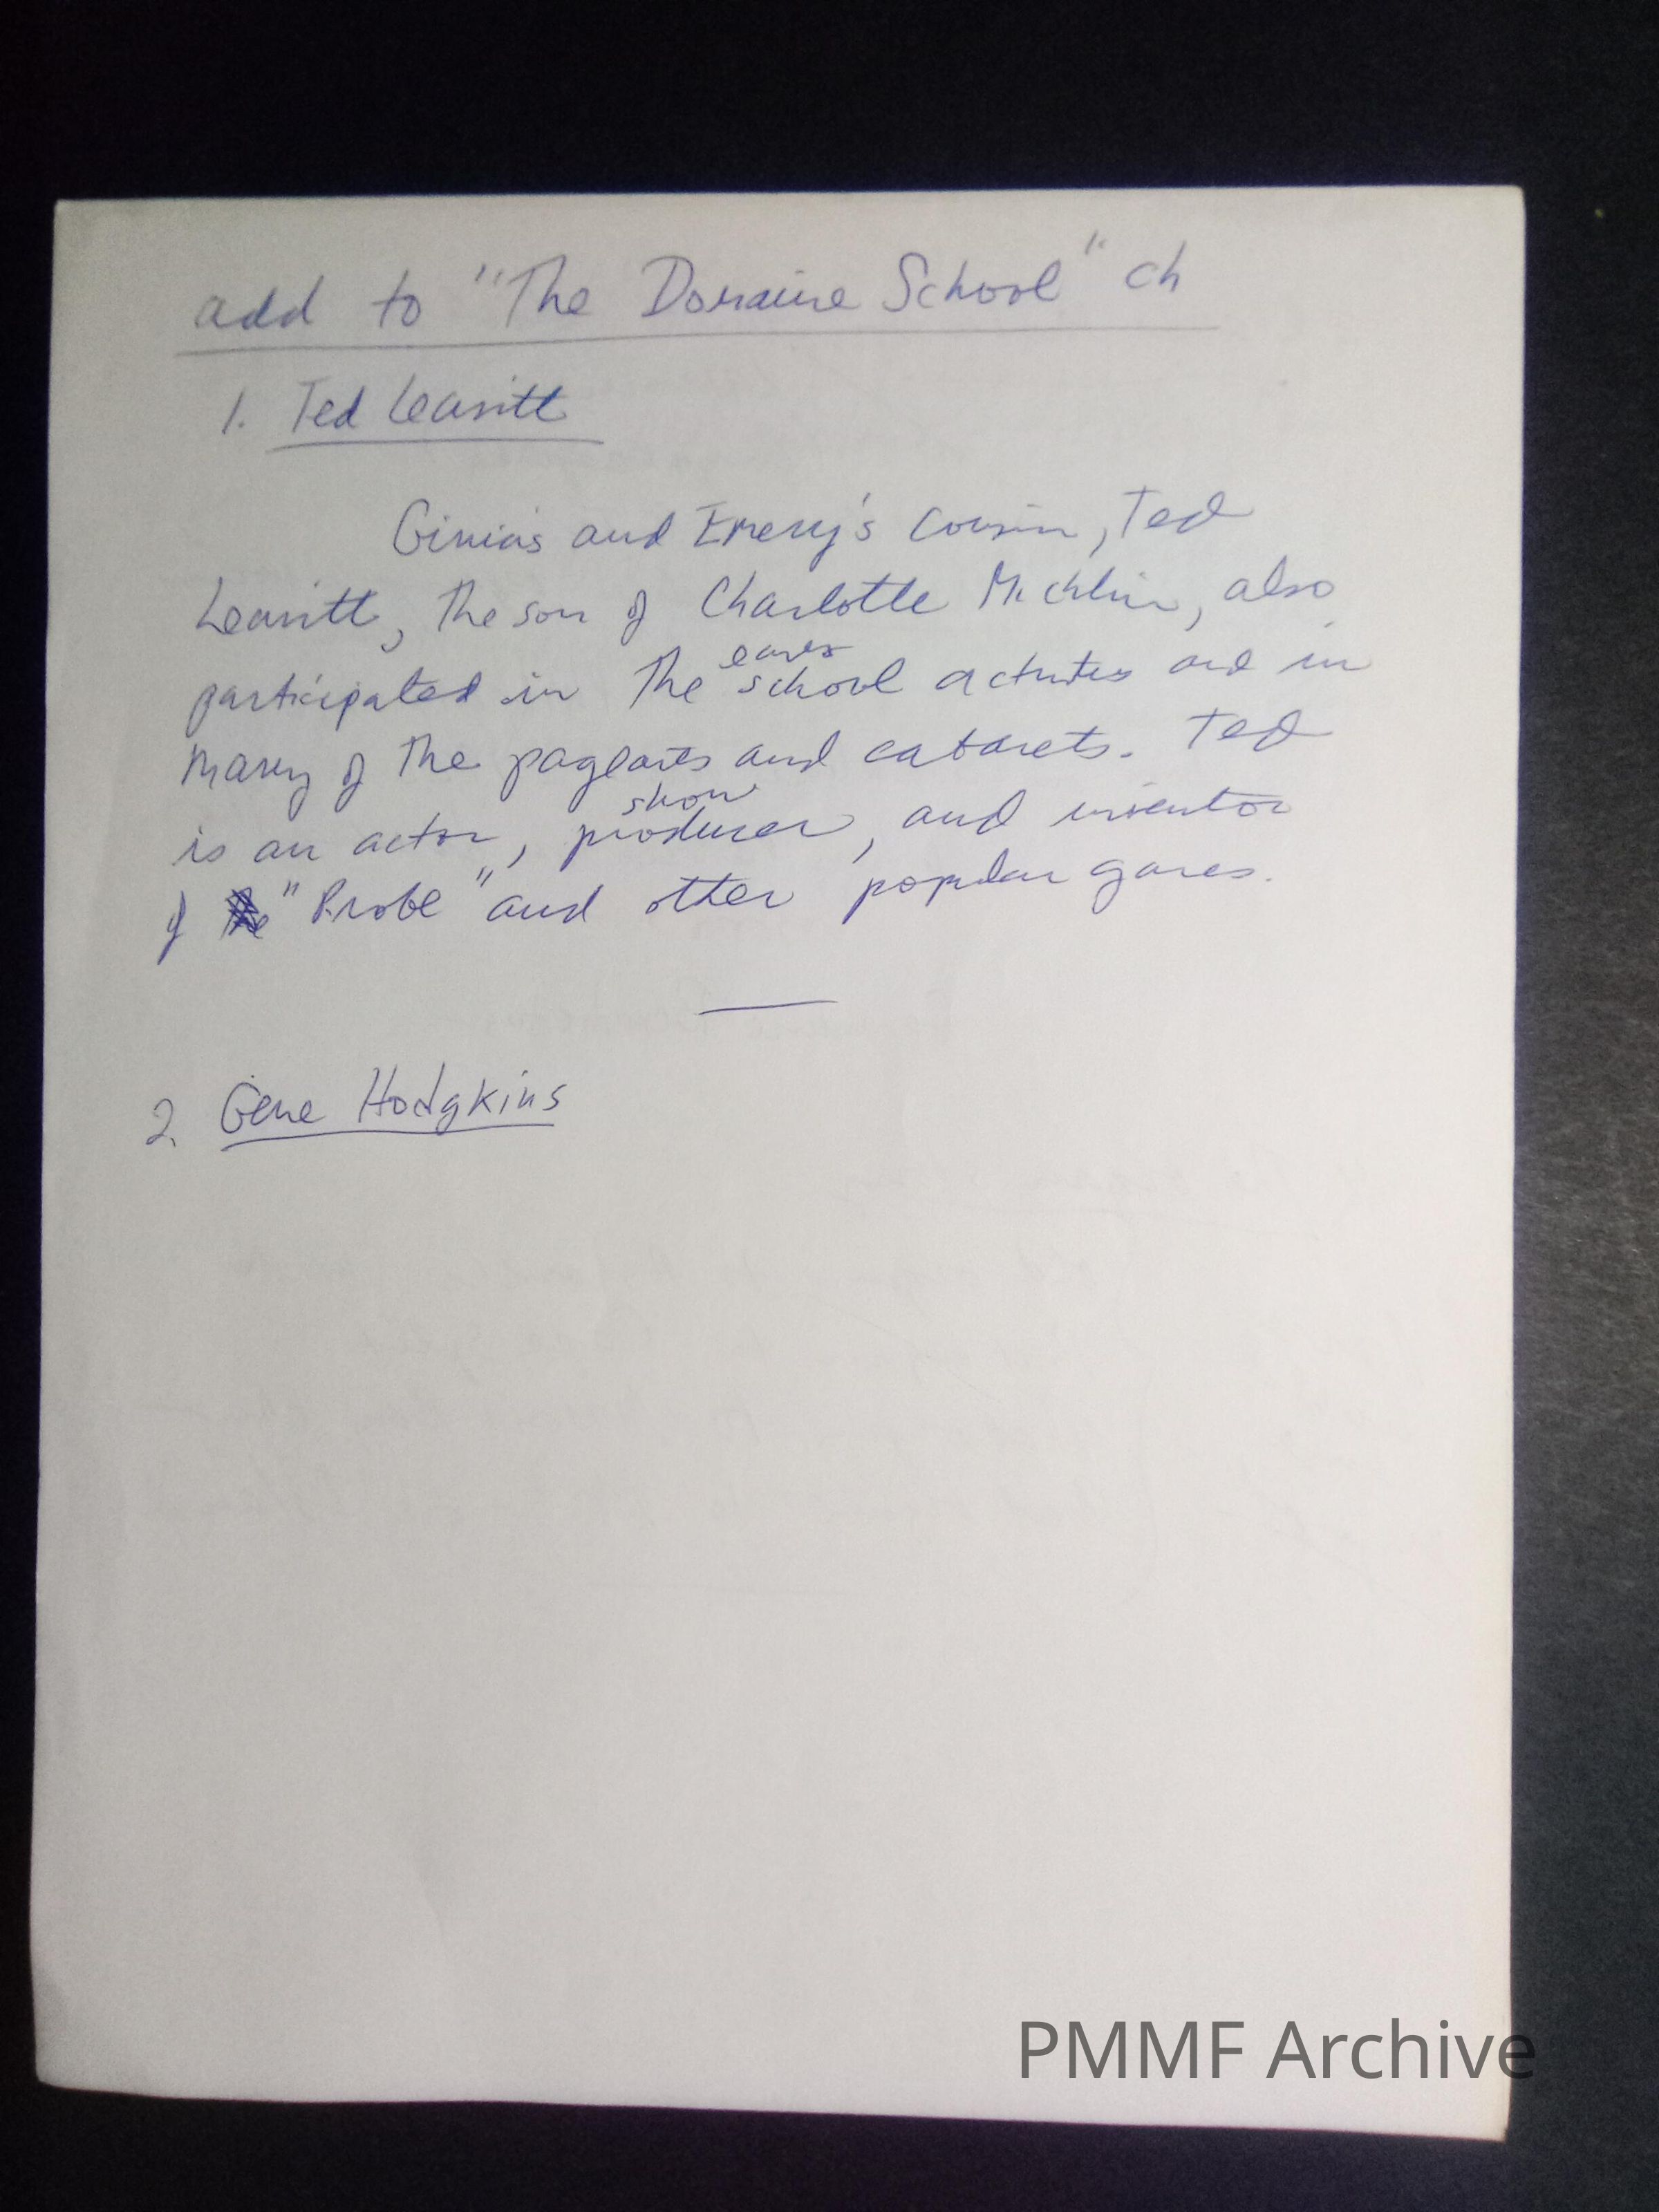 add to "The Doraine School" ch
1. Ted Leavitt
Ginia's and Emery's cousin, Ted
Leavitt, the son of Charlotte Michlin, also
early
participated in the school activities and in
many of the pageants and cabarets. Ted
show
is an actor, producer, and inventor
of "Probe" and other popular games.
2. Gene Hodgkins
PMMF Archive